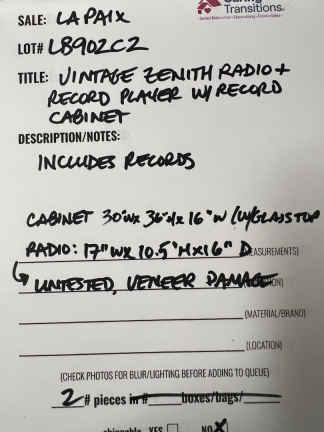 Transitions®
SALE: LAPAIX
LOT# L8902C2
TITLE: VINTAGE ZENITH RADIO +
RECORD PLAYER W/ RECORD
CABINET
DESCRIPTION/NOTES:
INCLUDES RECORDS
CABINET 30"W x 36"H x 16"W (W/GLASS TOP
RADIO: 17"W x 10.5"H x 16" D EASUREMENTS)
UNTESTED, VENEER DAMAGE
(MATERIAL/BRAND)
(LOCATION)
(CHECK PHOTOS FOR BLUR/LIGHTING BEFORE ADDING TO QUEUE)
2 # pieces in # boxes/bags/
YES NO X